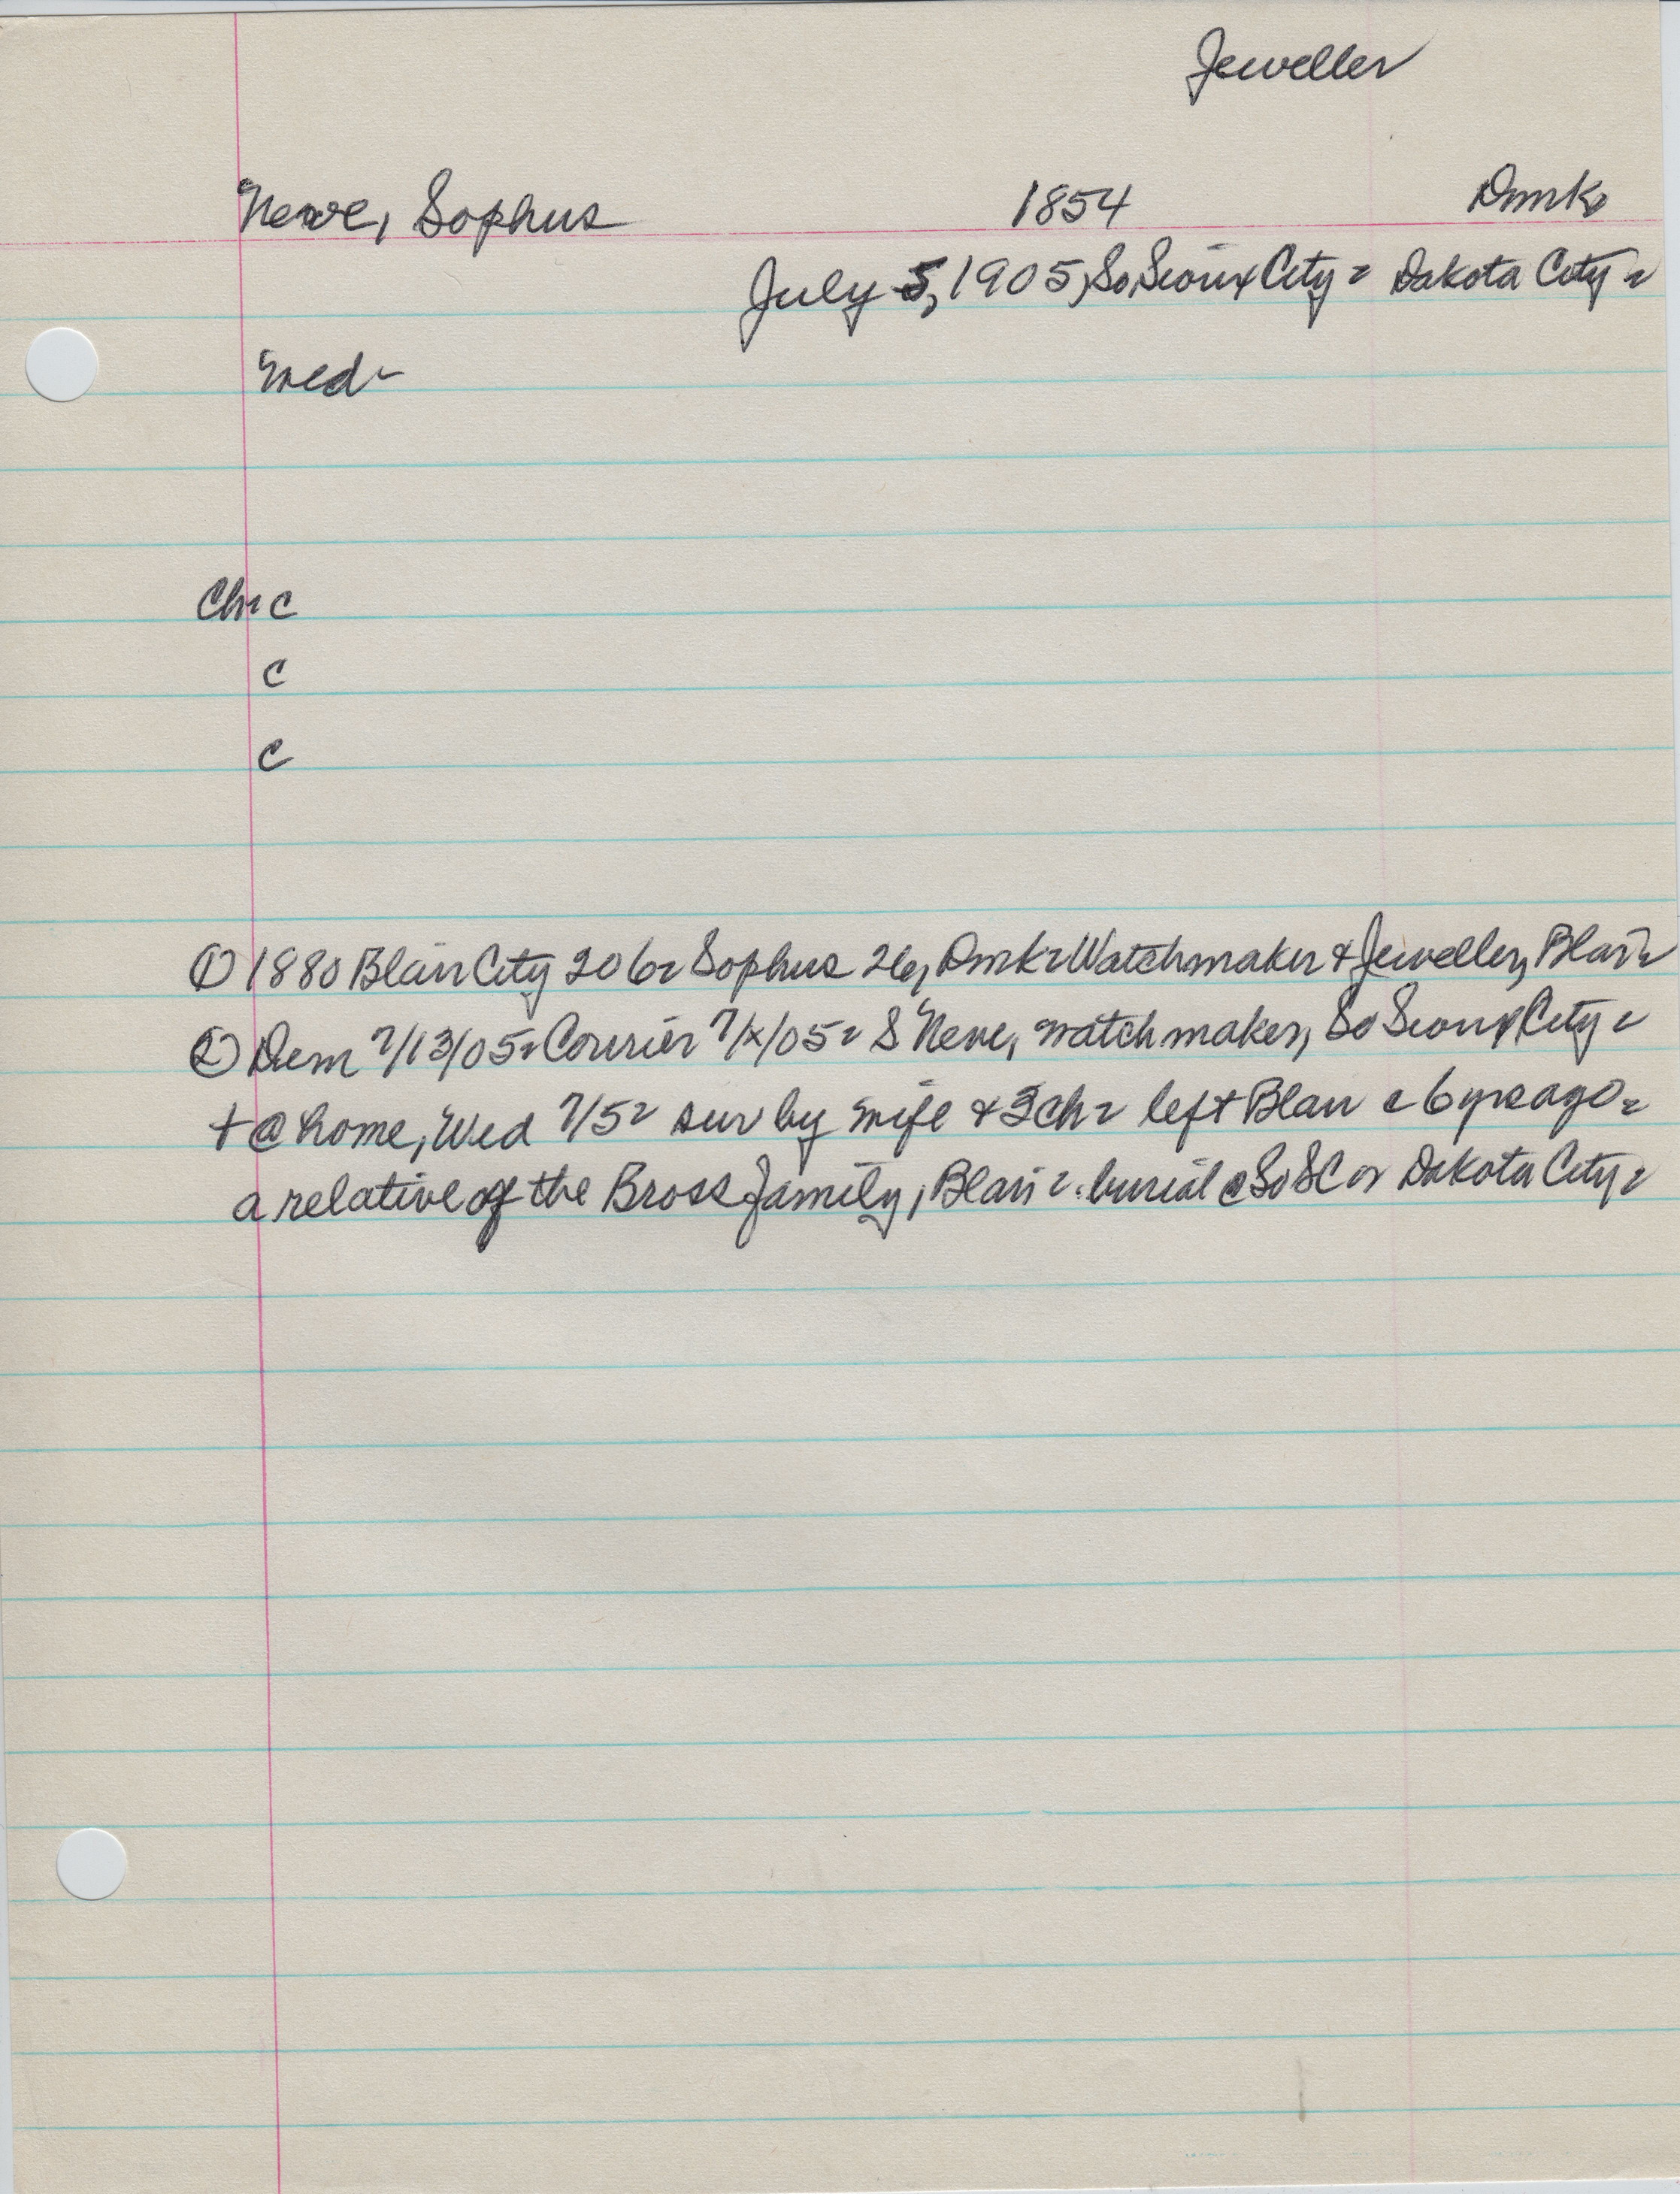 Jeweller
Neve, Sophus 1854 Dmk
July 5, 1905, So. Sioux City = Dakota City =
Med -
Ch: c
c
c
① 1880 Blair City 206= Sophus 26, Dmk= Watchmaker & Jeweller, Blair=
② Dem 7/13/05= Courier 7/x/05= S Neve, watch maker, So Sioux City =
+ @ home, Wed 7/5= sur by wife & 3 ch = left Blair c 6 yrs ago =
a relative of the Bross family, Blair =. burial @ So SC or Dakota City =